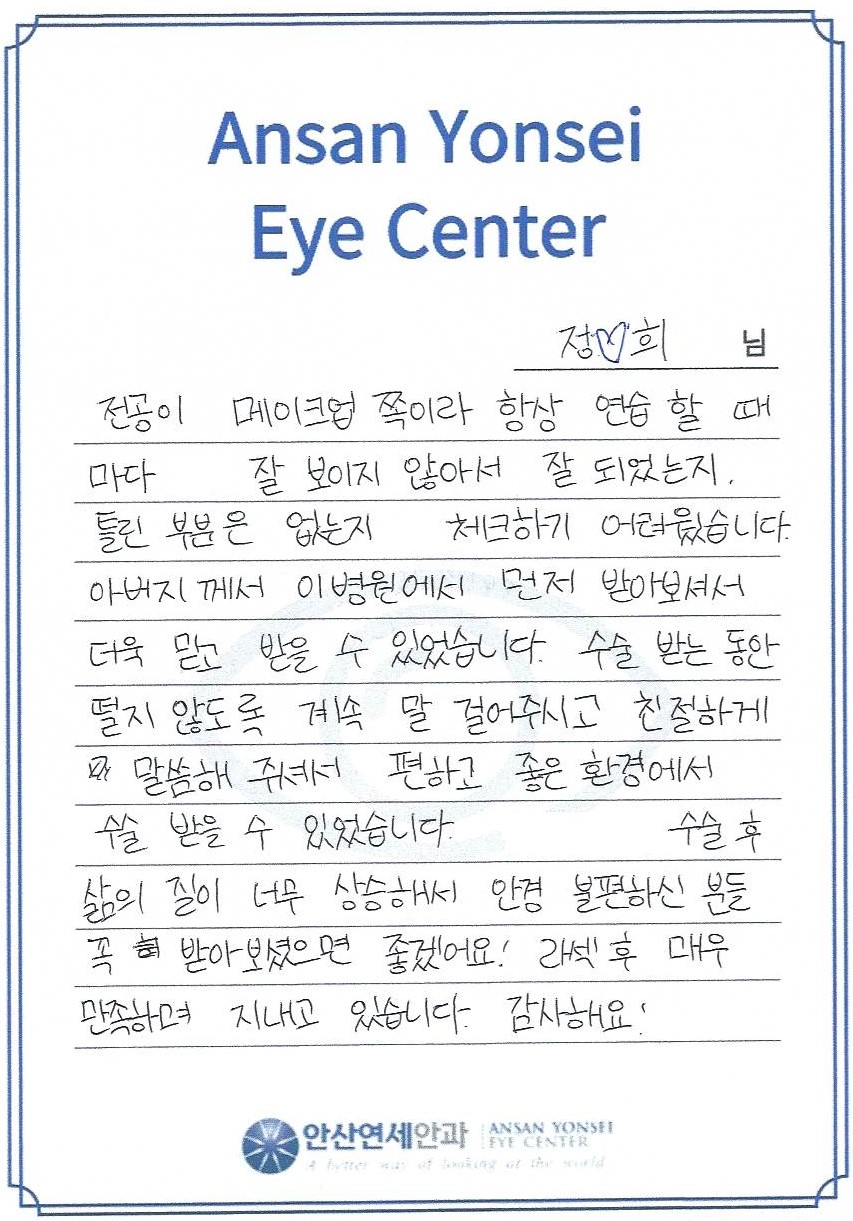 Ansan Yonsei
Eye Center
정♡희 님
전공이 메이크업 쪽이라 항상 연습 할 때
마다 잘 보이지 않아서 잘 되었는지.
틀린 부분은 없는지 체크하기 어려웠습니다.
아버지께서 이병원에서 먼저 받아보셔서
더욱 믿고 받을 수 있었습니다. 수술 받는 동안
떨지 않도록 계속 말 걸어주시고 친절하게
말씀해 주셔서 편하고 좋은 환경에서
수술 받을 수 있었습니다. 수술 후
삶의 질이 너무 상승해서 안경 불편하신 분들
꼭 받아보셨으면 좋겠어요! 라섹 후 매우
만족하며 지내고 있습니다. 감사해요!
안산연세안과 ANSAN YONSEI
EYE CENTER
A better way of looking at the world